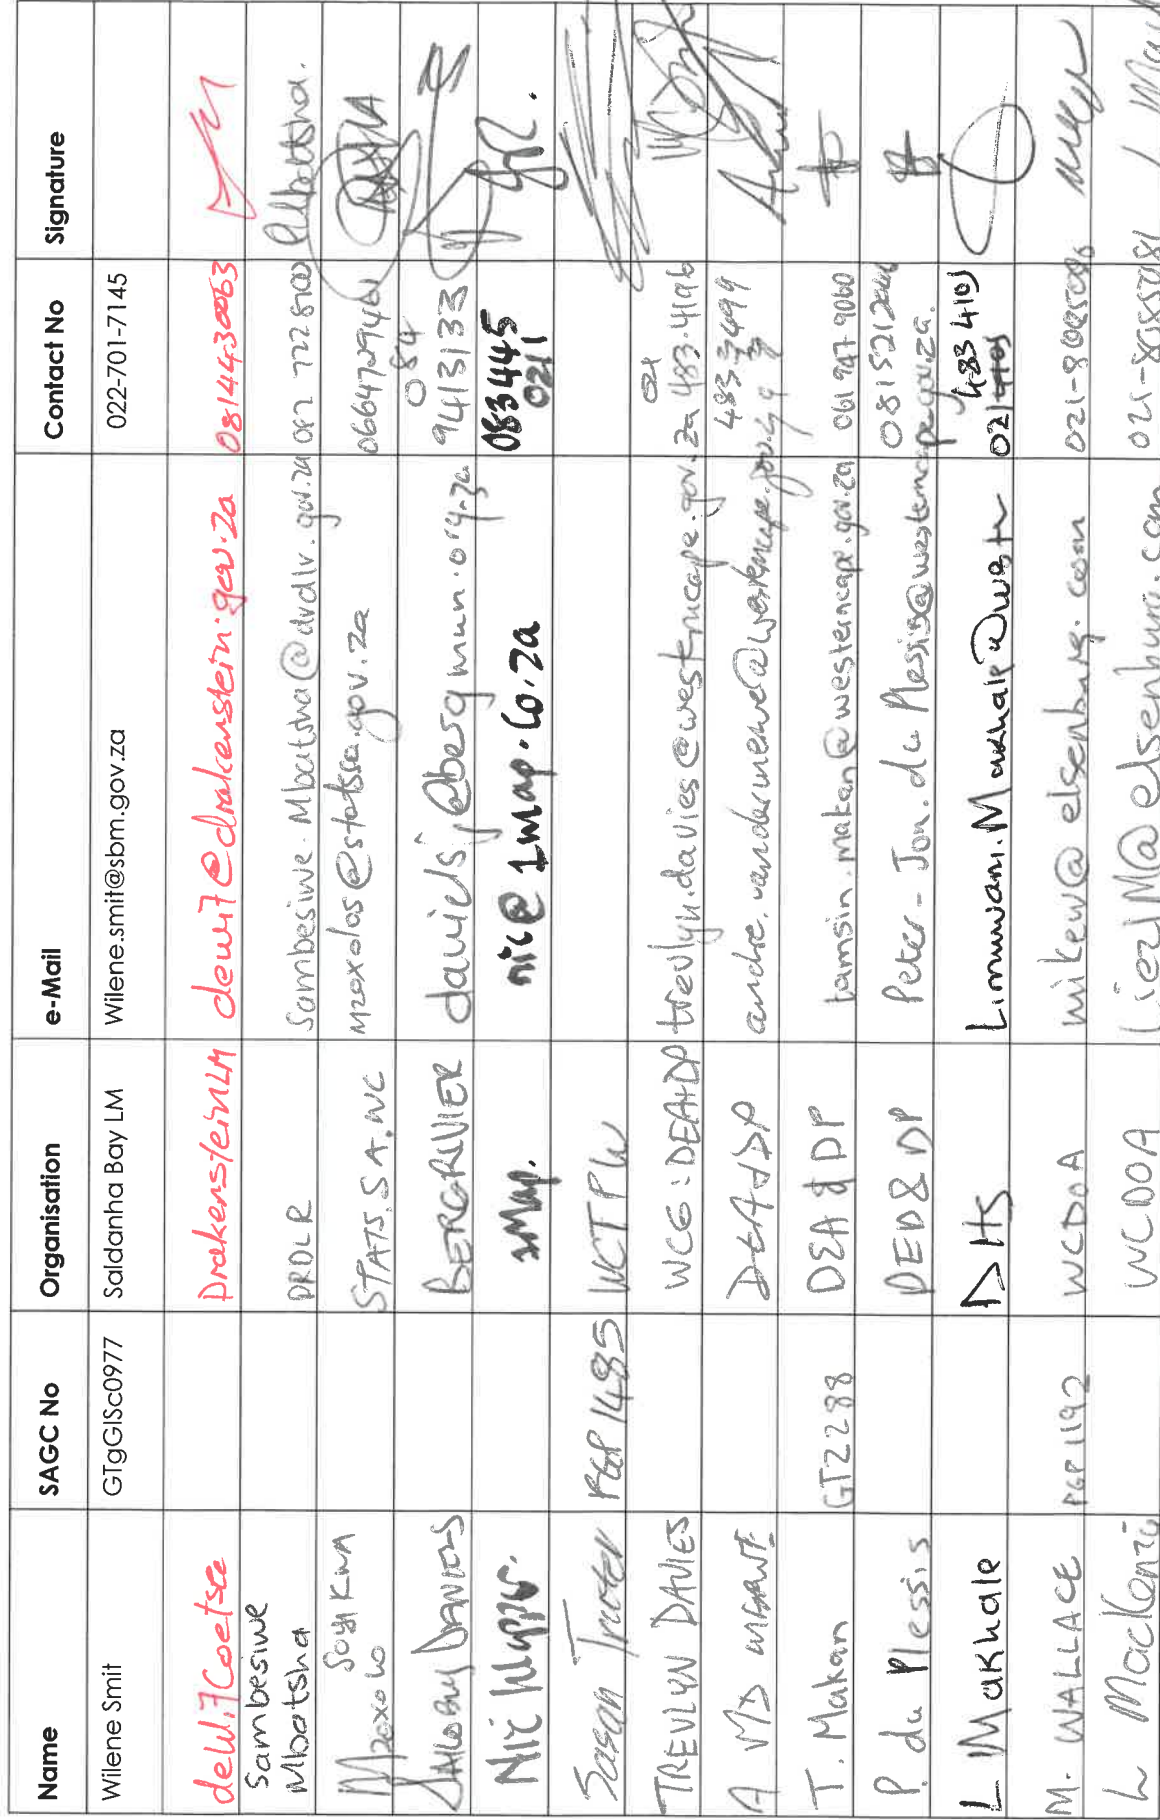 Name SAGC No Organisation e-Mail Contact No Signature
Wilene Smit GTgGISc0977 Saldanha Bay LM Wilene.smit@sbm.gov.za 022-701-7145
deWit Coetsee Drakenstein LM dewit@drakenstein.gov.za 0814430063
Sambesiwe
Mbatsha DRDLR Sambesiwe.Mbatsha@drdlr.gov.za 772 8100
Mzoxolo Soyikwa STATS.S.A.WC mzoxolos@statssa.gov.za 0664729461
DANIELS BERGRIVIER danielsj@bergmun.org.za 084
9413133
Nic 1Map. nic@1map.co.za 083445
021
Susan PGP1485 WCTPW
TREVLYN DAVIES WCG:DEA+DP trevlyn.davies@westerncape.gov.za 021 483-4196
A VD MERWE DEA+DP andre.vandermerwe@westerncape.gov.za
T. Makan GT2288 DEA & DP tamsin.makan@westerncape.gov.za 061 947 9060
P. du Plessis DED&DP Peter-Jon.du Plessis@westerncape.gov.za.
L Makhale DHS 483 4101
021
M. WALLACE PGP1192 WCDOA mikew@elsenburg.com
L Mackenzie WCDOA LiezlM@elsenburg.com 021-8085081